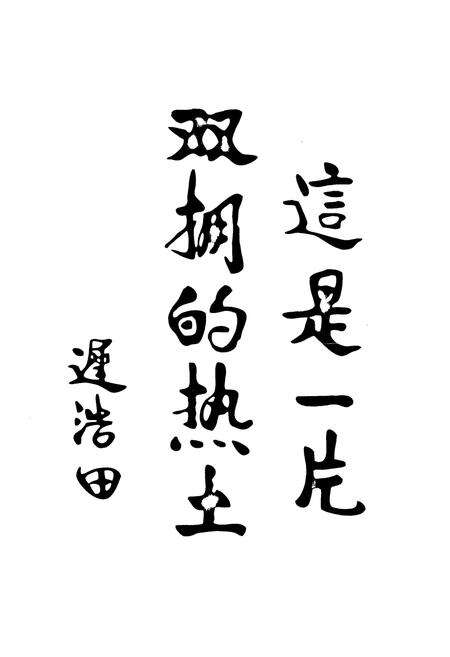 這是一片
双拥的热土
遲浩田